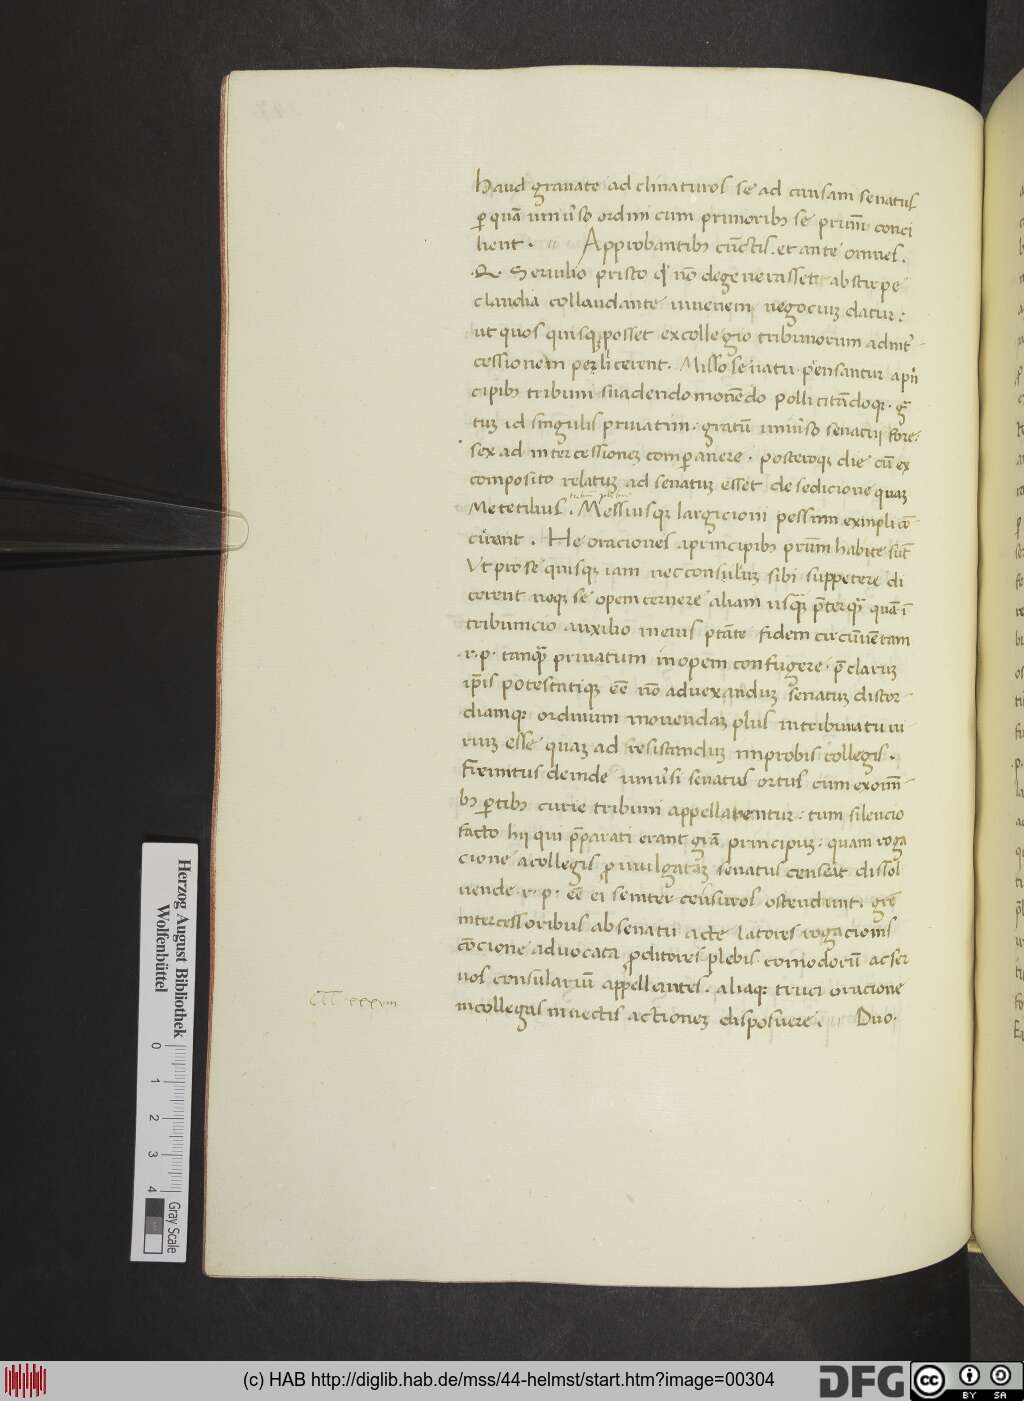 haud grauate ad clinaturos se ad causam senatus
ꝑ quā uniũso ordini cum primorib; se primū conci
lient . Approbantib; cūctis . et ante omnes .
.Q. Seruilio prisco qd nō degenerasset ab stirpe
claudia collaudante iuuenem negociuꝫ datur :
ut quos quisqꝫ posset ex collegio tribunorum ad int̃
cessionem perlicerent . Misso senatu p̃ensantur a p̃n
cipib; tribuni suadendo monẽdo pollicitãdoqꝫ . gr̃
tuꝫ id singulis priuatim . gratū uniũso senatui fore :
sex ad intercessioneꝫ comꝑauere . posteroqꝫ die cū ex
composito relatuꝫ ad senatuꝫ esset de sedicione quaꝫ
Metetilius . Messiusqꝫ largicioni pessimi exinpli cō
cirant . He oraciones a principib; primū habite sūt
Vt pro se quisqꝫ iam nec consuluꝫ sibi suppetere di
cerent neqꝫ se opem cernere aliam usqꝫ p̃terqꝫ quā ī
tribunicio auxilio in eius p̃tāte fidem circūuētam
.r.p. tanqꝫ priuatum inopem confugere . p̄claruꝫ
ip̃is potestatiqꝫ eē nō ad uexanduꝫ senatuꝫ discor
diamqꝫ ordinum mouendaꝫ plus in tribunatu ui
rium esse quaꝫ ad resistanduꝫ improbis collegis .
Fremitus deinde uniũsi senatus ortus cum ex omī
b; ꝑtib; curie tribuni appellarentur : tum silencio
facto hii qui p̄parati erant grā principuꝫ . quam roga
cione a collegis promulgatam senatus censeat dissol
uende .r.p. eē ei se inter censuros ostendunt . grē
intercessoribus ab senatu acte latores rogacionis
cōcione aduocata proditores plebis comodorū ac ser
uos consulariū appellantes . aliaqꝫ truci oracione
in collegas inuectis actioneꝫ disposuere . Duo .
Herzog August Bibliothek
Wolfenbüttel
0 1 2 3 4
Gray Scale
(c) HAB http://diglib.hab.de/mss/44-helmst/start.htm?image=00304
DFG
cc BY SA